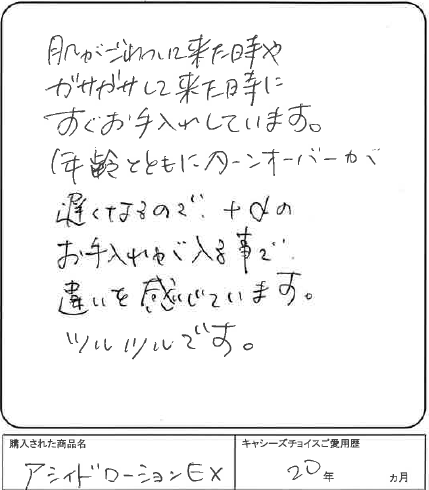 肌がごわついて来た時や
ガサガサして来た時に
すぐお手入れしています。
(年齢とともにターンオーバーが
遅くなるので、+αの
お手入れが入る事で
違いを感じています。
ツルツルです。
購入された商品名
キャシーズチョイスご愛用歴
アシィドローションEX
20年
カ月